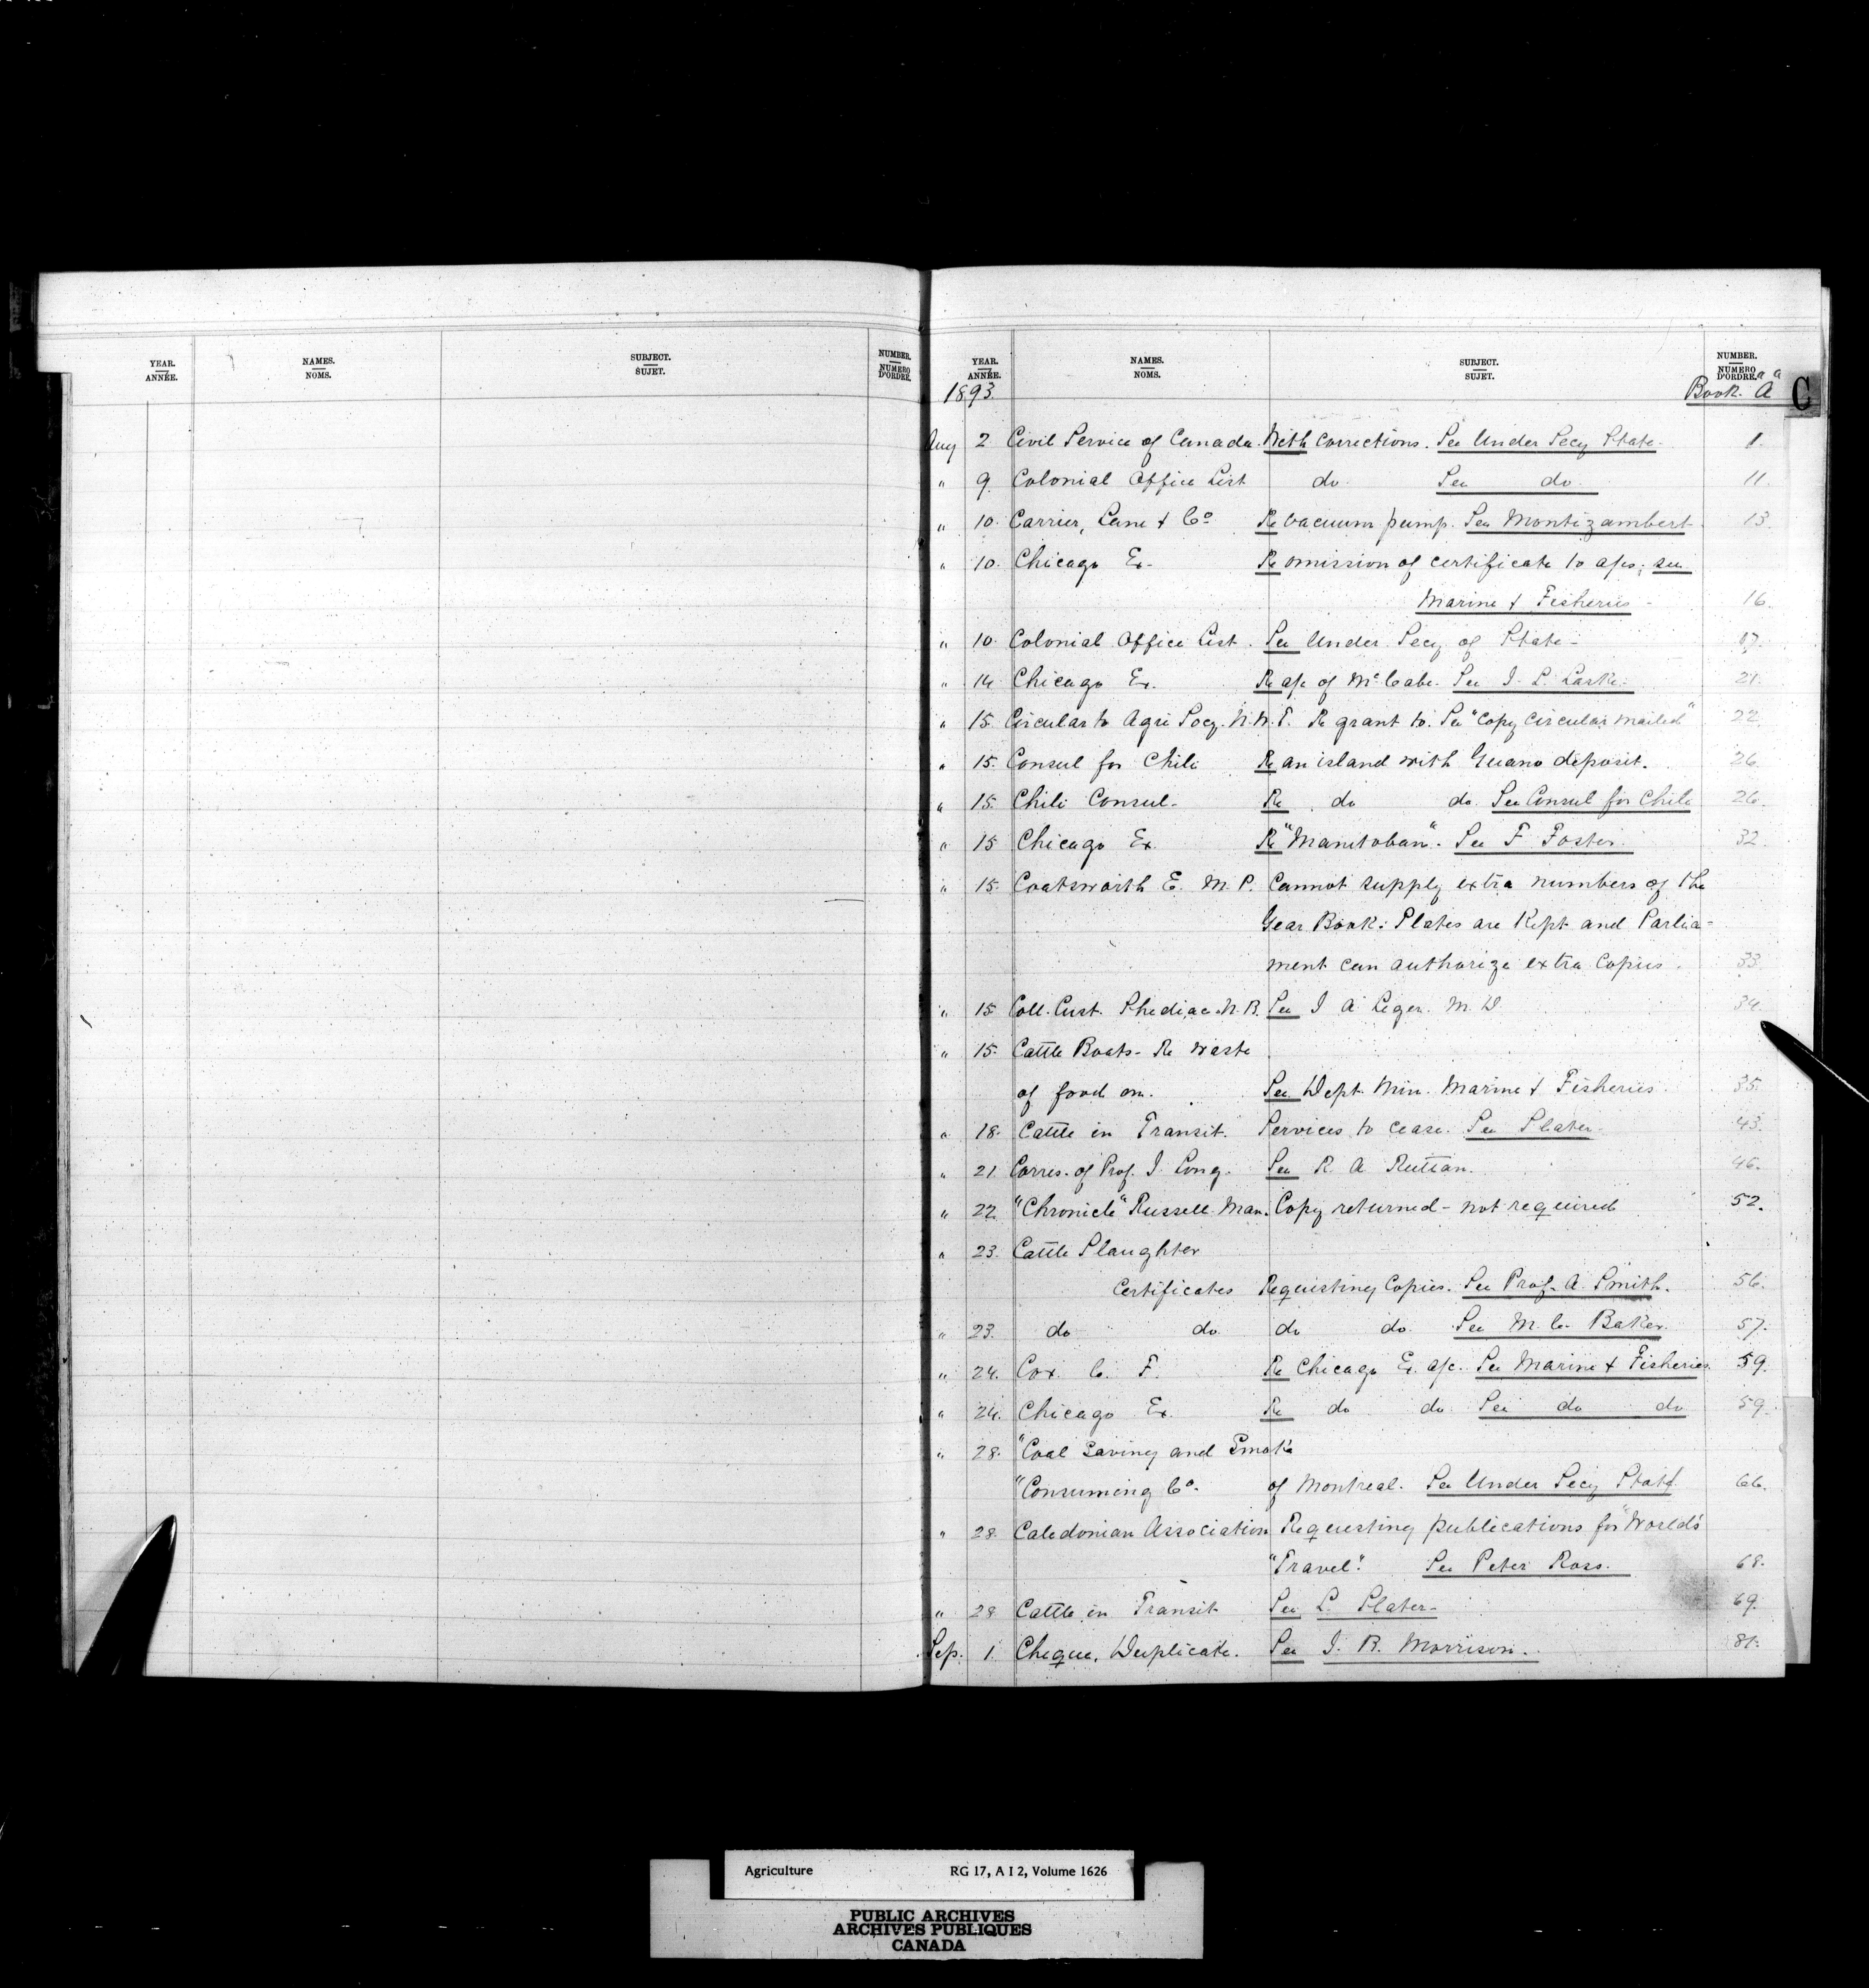 YEAR. NAMES. SUBJECT. NUMBER.
ANNÉE. NOMS. SUJET. NUMERO D'ORDRE.
YEAR. NAMES. SUBJECT. NUMBER.
ANNÉE. NOMS. SUJET. NUMERO D'ORDRE.
1893. Book "A" C
Aug 2 Civil Service of Canada. With corrections. See Under Secy State- 1.
" 9. Colonial Office List do. See do. 11.
" 10. Carrier, Lane & Co Re vacuum pump. See Montizambert 13.
" 10. Chicago Ex- Re omission of certificate to a/cs; see
Marine & Fisheries - 16.
" 10. Colonial Office List. See Under Secy of State- 17.
" 14 Chicago Ex. Re a/c of McCabe. See J. L. 21.
" 15. Circular to Agri Socy. N.W.T. Re grant to. See "Copy Circular mailed" 22.
" 15. Consul for Chili Re an island with Guano deposit. 26.
" 15. Chili Consul- Re do do. See Consul for Chili 26.
" 15 Chicago Ex. Re "Manitoban". See F Foster. 32.
" 15. Coatsworth E. M. P. Cannot supply extra numbers of the
Year Book: Plates are kept and Parlia-
ment can authorize extra copies. 33.
" 15 Coll. Cust. Shediac N.B. See J A Leger. M. D 34.
" 15. Cattle Boats- Re waste
of food on. See Dept. Min. Marine & Fisheries 35.
" 18. Cattle in Transit. Services to cease. See Slater. 43.
" 21 Corres. of Prof. J. Long. See R. A. Ruttan. 46.
" 22 "Chronicle" Russell Man. Copy returned - not required 52.
" 23. Cattle Slaughter
Certificates Requesting Copies. See Prof. A. Smith. 56.
" 23. do do. do do. See M. C. Baker. 57.
" 24. Cox C. F. Re Chicago Ex. a/c. See Marine & Fisheries. 59.
" 24. Chicago Ex. Re do do See do do 59.
" 28. "Coal Saving and Smoke
"Consuming Co. of Montreal. See Under Secy State 66.
" 28. Caledonian Association Requesting publications for "World's
"Travel". See Peter Ross. 68.
" 28 Cattle in Transit See L. Slater- 69.
Sep. 1. Cheque, Duplicate. See J. B. Morrison. 81.
Agriculture RG 17, A I 2, Volume 1626
PUBLIC ARCHIVES
ARCHIVES PUBLIQUES
CANADA